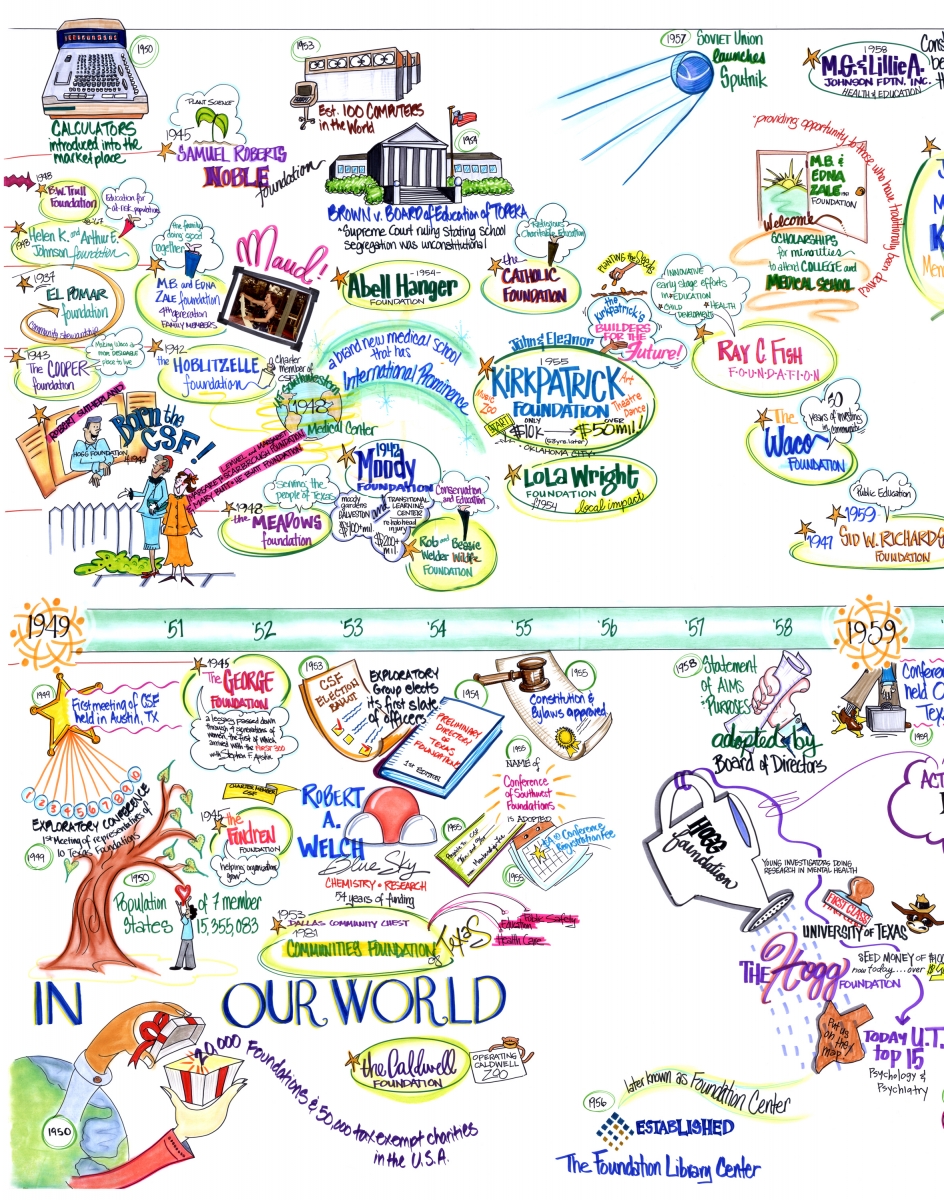 1950
CALCULATORS
introduced into the
market place
PLANT SCIENCE
1945
SAMUEL ROBERTS
NOBLE
foundation
1953
Est. 100 COMPUTERS
in the World
1954
BROWN v. BOARD of Education of TOPEKA
Supreme Court ruling stating school
segregation was unconstitutional
1957
SOVIET Union
launches
Sputnik
1958
M.G. & Lillie A.
JOHNSON FDTN. INC.
HEALTH & EDUCATION
"providing opportunity to those who have traditionally been denied
M.B. &
EDNA
ZALE
FOUNDATION
Welcome
SCHOLARSHIPS
for minorities
to attend COLLEGE and
MEDICAL SCHOOL
1948
B.W. Trull
Foundation
Education for
at-risk populations
1948
Helen K. and Arthur E.
Johnson foundation
the family
doing good
together
M.B. and EDNA
ZALE foundation
4th generation
FAMILY MEMBERS
Maud!
1937
EL POMAR
foundation
community stewardship
-1954-
Abell Hanger
FOUNDATION
Religious
Charitable Education
the
CATHOLIC
FOUNDATION
PLANTING the SEEDS
the
Kirkpatrick's
BUILDERS
FOR THE
Future!
INNOVATIVE
early stage efforts
in EDUCATION
CHILD DEVELOPMENT
HEALTH
RAY C. FISH
FOUNDATION
1943
The COOPER
foundation
Making Waco a
more DESIRABLE
place to live
1942
the HOBLITZELLE
foundation
Charter
member of
CSF
a brand new medical school
that has
International Prominence
UT Southwestern
1948
Medical Center
John & Eleanor
1955
KIRKPATRICK
FOUNDATION
Art
Music
Zoo
Theatre
Dance
START
ONLY
$10K
OVER
$50 mil!
OKLAHOMA CITY
30
years of investing
in community
The
Waco
FOUNDATION
ROBERT SUTHERLAND
HOGG FOUNDATION
Born the
CSF!
LEMUEL and MARGARET
SCARBROUGH FOUNDATION
MARY BUTT • HE BUTT FOUNDATION
serving the
people of Texas
1948
the MEADOWS
foundation
1942
Moody
FOUNDATION
moody
gardens
GALVESTON
and
TRANSITIONAL
LEARNING
CENTER
re-hab head
injury
$200+
mil.
Conservation
and Education
Rob and Bessie
Welder Wildlife
FOUNDATION
LoLa Wright
FOUNDATION
1954
local impact
Public Education
1959
1947
SID W. RICHARDS
FOUNDATION
1949
'51
'52
'53
'54
'55
'56
'57
'58
1959
1949
First meeting of CSF
held in Austin, TX
1 2 3 4 5 6 7 8 9 10
EXPLORATORY CONFERENCE
1st Meeting of representatives of
10 Texas Foundations
1949
1945
The GEORGE
FOUNDATION
a legacy passed down
through 4 generations of
women, the first of which
arrived with the FIRST 300
with Stephen F. Austin
1953
CSF
ELECTION
BALLOT
EXPLORATORY
Group elects
its first slate
of officers
1954
PRELIMINARY
DIRECTORY
of
TEXAS
FOUNDATIONS
1ST EDITION
1955
Constitution &
Bylaws approved
1955
NAME of
Conference
of Southwest
Foundations
IS ADOPTED
1958
Statement
of AIMS
& PURPOSES
adopted by
Board of Directors
1959
CHARTER MEMBER
CSF
1945
the
Fondren
FOUNDATION
helping organizations
grow
ROBERT
A.
WELCH
Blue Sky
CHEMISTRY • RESEARCH
54 years of funding
1955
Conference
Registration Fee
1955
1950
Population of 7 member
States 15,355,083
1953
DALLAS COMMUNITY CHEST
1981
COMMUNITIES FOUNDATION
of TEXAS
Public Safety
Education
Health Care
Hogg
foundation
YOUNG INVESTIGATORS DOING
RESEARCH IN MENTAL HEALTH
FIRST CLASS
UNIVERSITY OF TEXAS
THE Hogg
FOUNDATION
SEED MONEY OF
now today....over
Put us
on the
map
TODAY U.T.
top 15
Psychology &
Psychiatry
IN OUR WORLD
1950
20,000 Foundations & 50,000 tax exempt charities
in the U.S.A.
the Caldwell
FOUNDATION
OPERATING
CALDWELL
ZOO
1956
later known as Foundation Center
ESTABLISHED
The Foundation Library Center